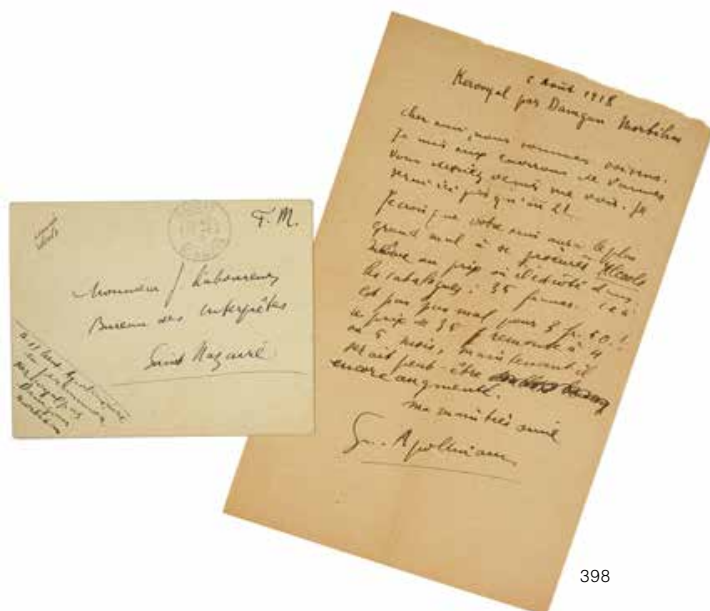 F. M.
Monsieur J Laboureur
Bureau des interprètes
Saint Nazaire
Août 1918
Kervoyal par Damgan Morbihan
cher ami, nous sommes voisins.
Je suis aux environs de Vannes
vous devriez venir me voir. Je
serai ici jusqu'au 21.
Je crois que votre ami aura le plus
grand mal à se procurer Alcools
même au prix où il était dans
les catalogues : 35 francs. Ce
est pas mal pour 3 fr. 50.
le prix de 35 f remonte à 4
ou 5 mois, maintenant il
serait peut-être
encore augmenté.
Ma main très amie
G.. Apollinaire
398